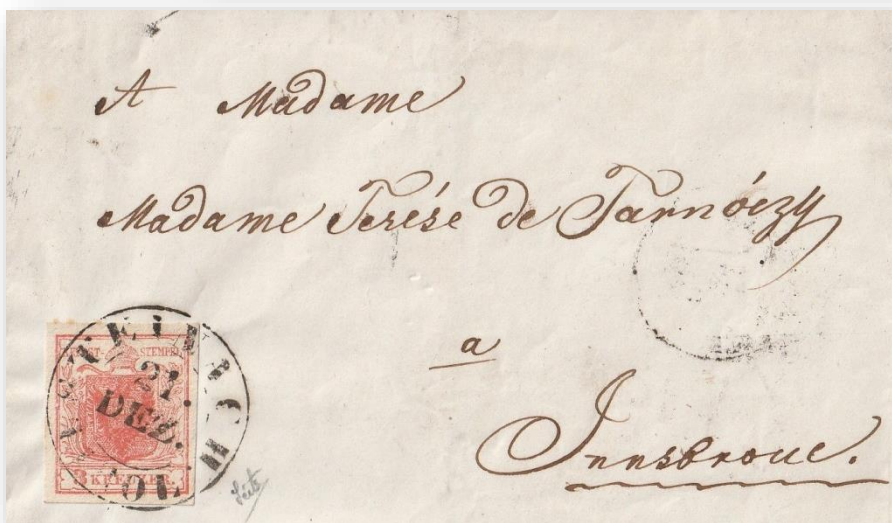 A Madame
Madame Terése de Tarnóczy
a
Innsbrouc.
STEINACH
21.
DEZ.
STEMPEL
3 KREUZER.